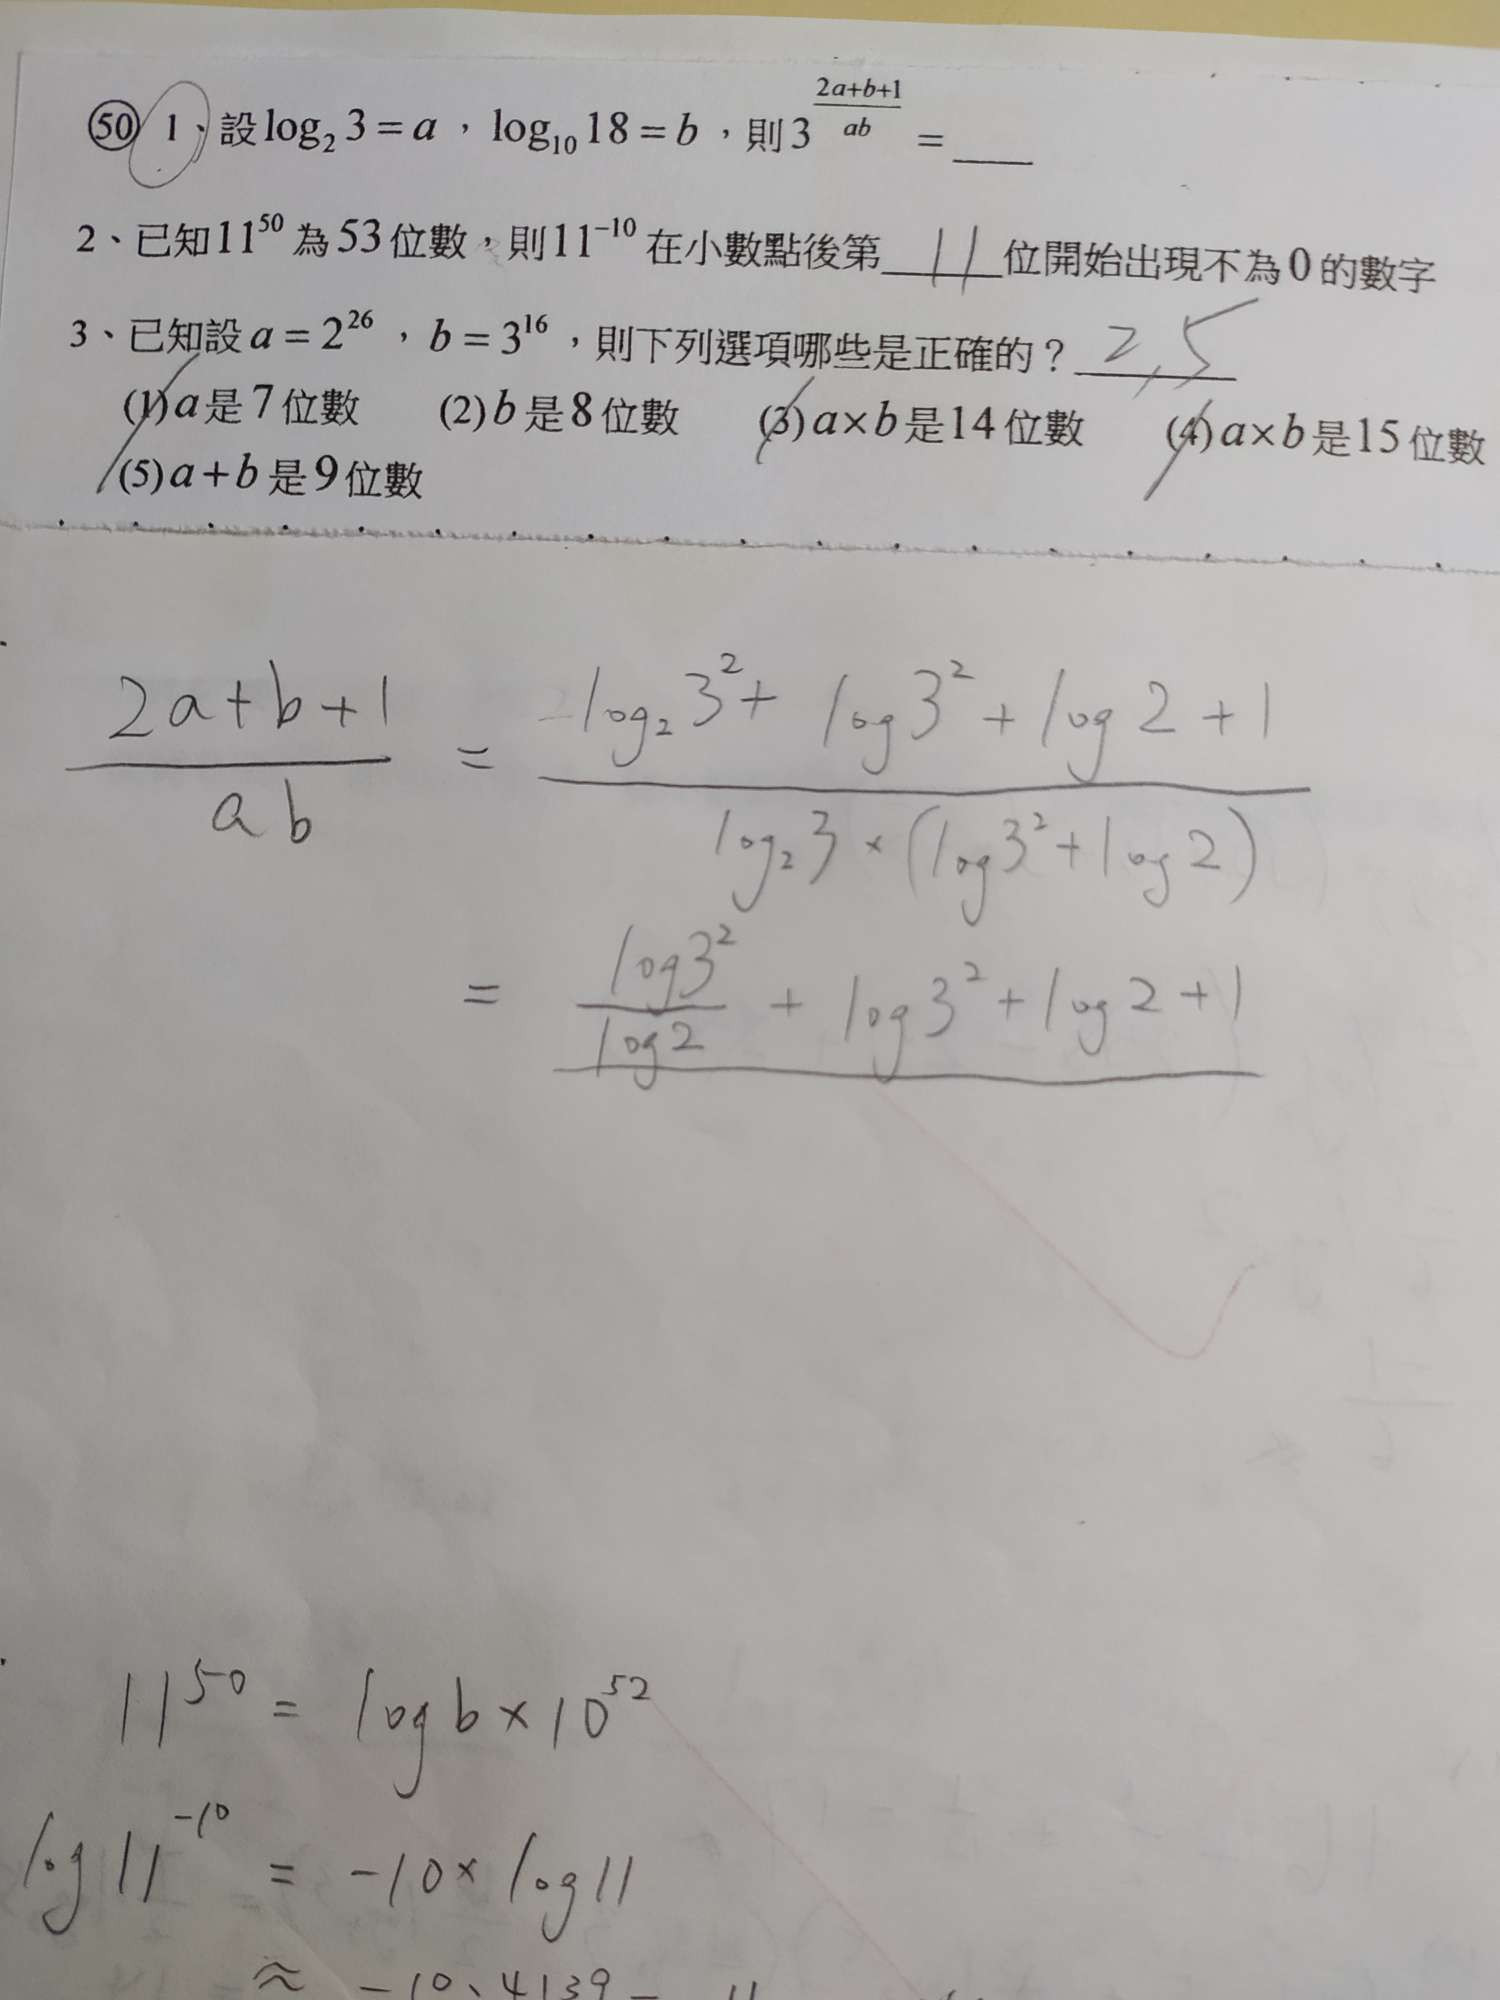 ㊿ 1、設 log₂ 3 = a，log₁₀ 18 = b，則 3^((2a+b+1)/(ab)) = ___
2、已知 11⁵⁰ 為 53 位數，則 11⁻¹⁰ 在小數點後第 11 位開始出現不為 0 的數字
3、已知設 a = 2²⁶，b = 3¹⁶，則下列選項哪些是正確的？ 2,5
(1) a 是 7 位數 (2) b 是 8 位數 (3) a×b 是 14 位數 (4) a×b 是 15 位數
(5) a+b 是 9 位數
(2a+b+1)/(ab) = (log₂ 3² + log 3² + log 2 + 1)/(log₂ 3 × (log 3² + log 2))
= (log 3²)/(log 2) + log 3² + log 2 + 1
11⁵⁰ = log b × 10⁵²
log 11⁻¹⁰ = -10 × log 11
≈ -10.4139 =